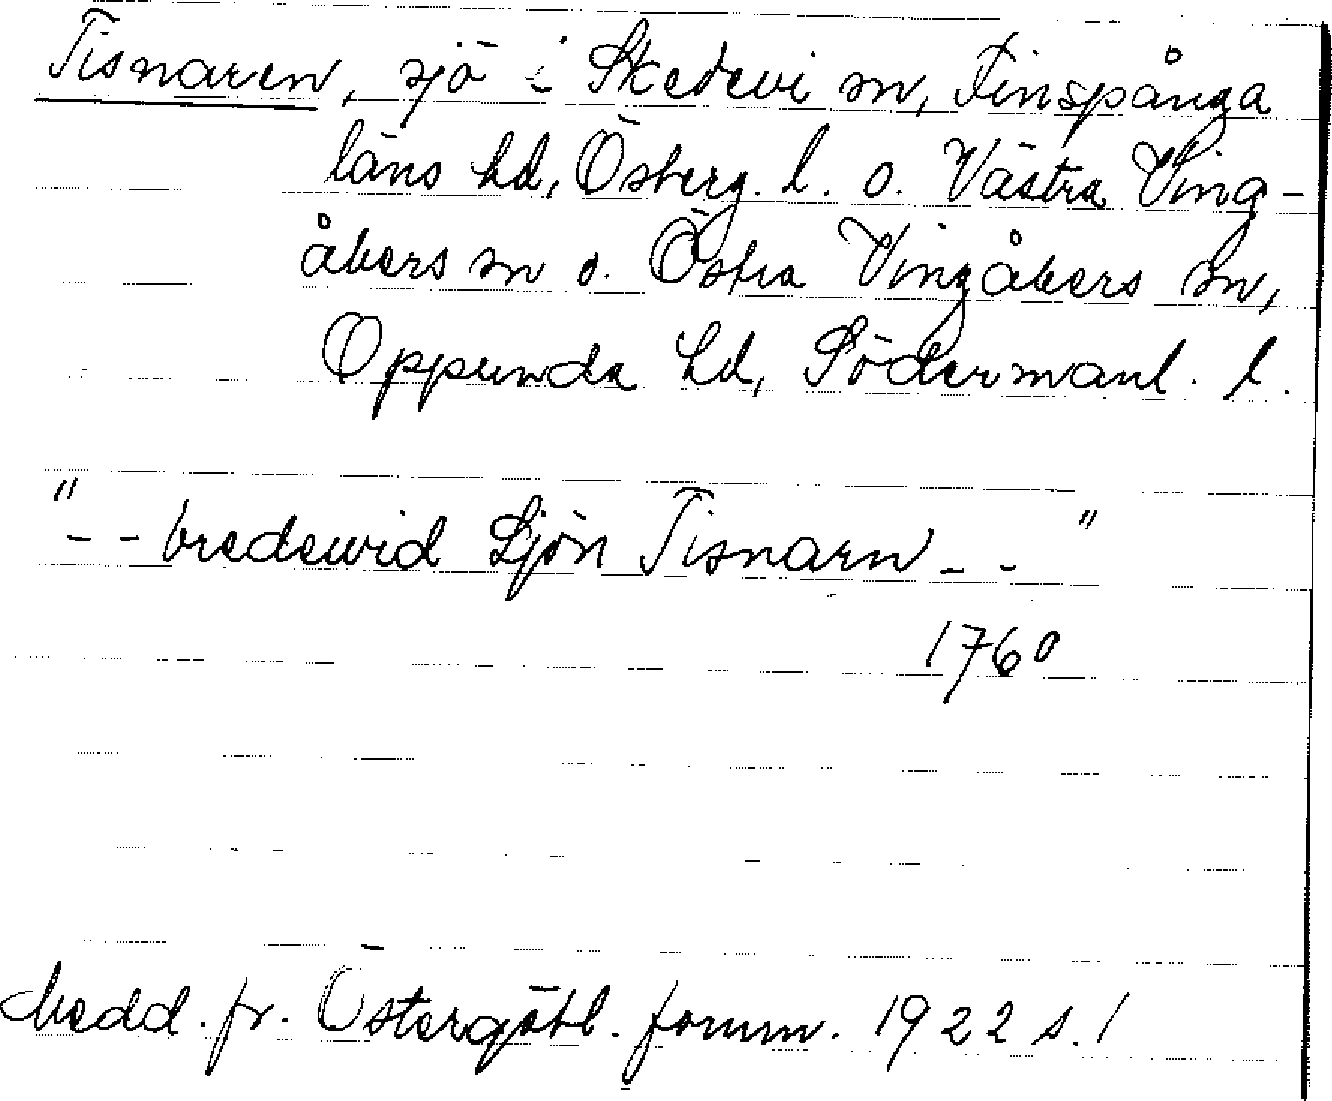 Tisnaren, sjö i Skedevi sn, Finspånga
läns hd, Österg. l. o. Västra Ving-
åkers sn o. Östra Vingåkers sn,
Oppunda hd, Södermanl. l.
"-- bredewid Sjön Tisnarn --"
1760
Medd. fr. Östergötl. fornm. 1922 s. 1